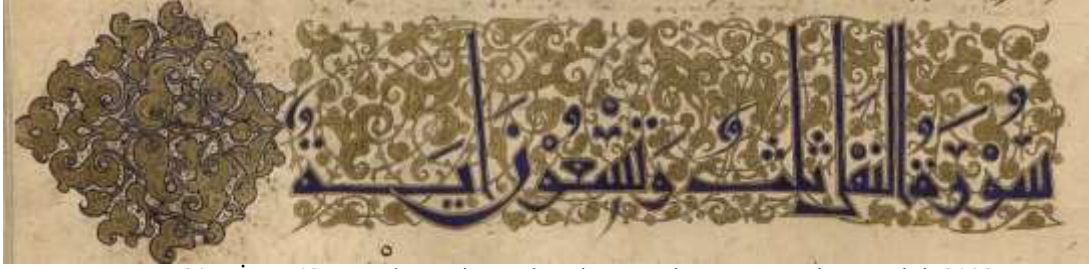 سُورَةُ النمل ثلثٌ وَتِسْعُوْنَ ايَةً